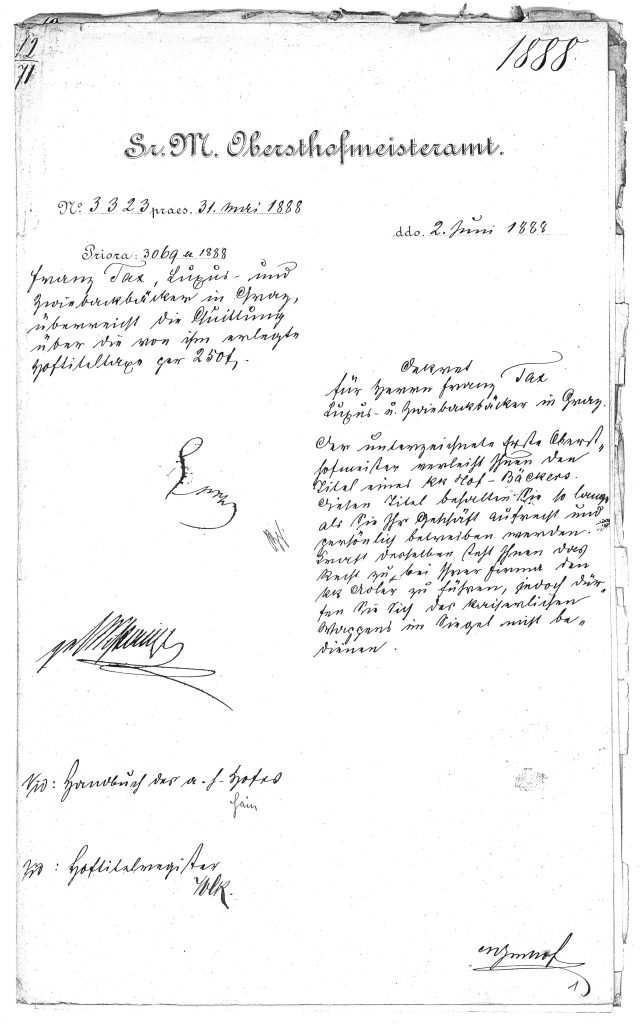 12
71
1888
Sr. M. Obersthofmeisteramt.
No. 3323 praes. 31. Mai 1888
ddo. 2. Juni 1888
Priora: 3069 ex 1888
Franz Tax, Luxus- und
Zwiebackbäcker in Graz,
überreicht die Quittung
über die von ihm erlegte
Hoftiteltaxe per 250 f.
Dekret
für Herrn Franz Tax
Luxus- u. Zwiebackbäcker in Graz.
Der unterzeichnete Erste Oberst-
hofmeister verleiht Ihnen den
Titel eines kk Hof-Bäckers.
Diesen Titel behalten Sie so lange
als Sie Ihr Geschäft aufrecht und
persönlich betreiben werden.
Kraft desselben steht Ihnen das
Recht zu, bei Ihrer Firma den
kk Adler zu führen, jedoch dür-
fen Sie Sich des kaiserlichen
Wappens im Siegel nicht be-
dienen.
Vid: Handbuch des a. h. Hofes
Vid: Hoftitelregister
1